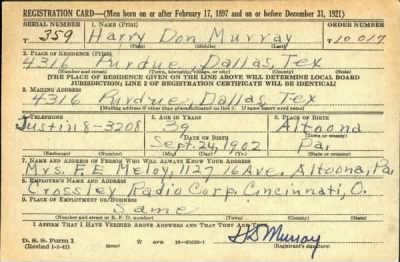 REGISTRATION CARD—(Men born on or after February 17, 1897 and on or before December 31, 1921)
SERIAL NUMBER 1. NAME (Print) ORDER NUMBER
T 359 Harry Don Murray T 10017
(First) (Middle) (Last)
2. PLACE OF RESIDENCE (Print)
4316 Purdue, Dallas, Tex
(Number and street) (Town, township, village, or city) (County) (State)
[THE PLACE OF RESIDENCE GIVEN ON THE LINE ABOVE WILL DETERMINE LOCAL BOARD
JURISDICTION; LINE 2 OF REGISTRATION CERTIFICATE WILL BE IDENTICAL]
3. MAILING ADDRESS
4316 Purdue, Dallas, Tex
[Mailing address if other than place indicated on line 2. If same insert word same]
4. TELEPHONE 5. AGE IN YEARS 6. PLACE OF BIRTH
Justin 8-3208 39 Altoona
DATE OF BIRTH (Town or county)
Sept. 24, 1902 Pa.
(Exchange) (Number) (Mo.) (Day) (Yr.) (State or country)
7. NAME AND ADDRESS OF PERSON WHO WILL ALWAYS KNOW YOUR ADDRESS
Mrs. F. E. Meloy, 1127 16 Ave. Altoona, Pa.
8. EMPLOYER'S NAME AND ADDRESS
Crossley Radio Corp. Cincinnati, O.
9. PLACE OF EMPLOYMENT OR BUSINESS
Same
(Number and street or R. F. D. number) (Town) (County) (State)
I AFFIRM THAT I HAVE VERIFIED ABOVE ANSWERS AND THAT THEY ARE TRUE.
D. S. S. Form 1
(Revised 1-1-42) (over) HD Murray
(Registrant's signature)